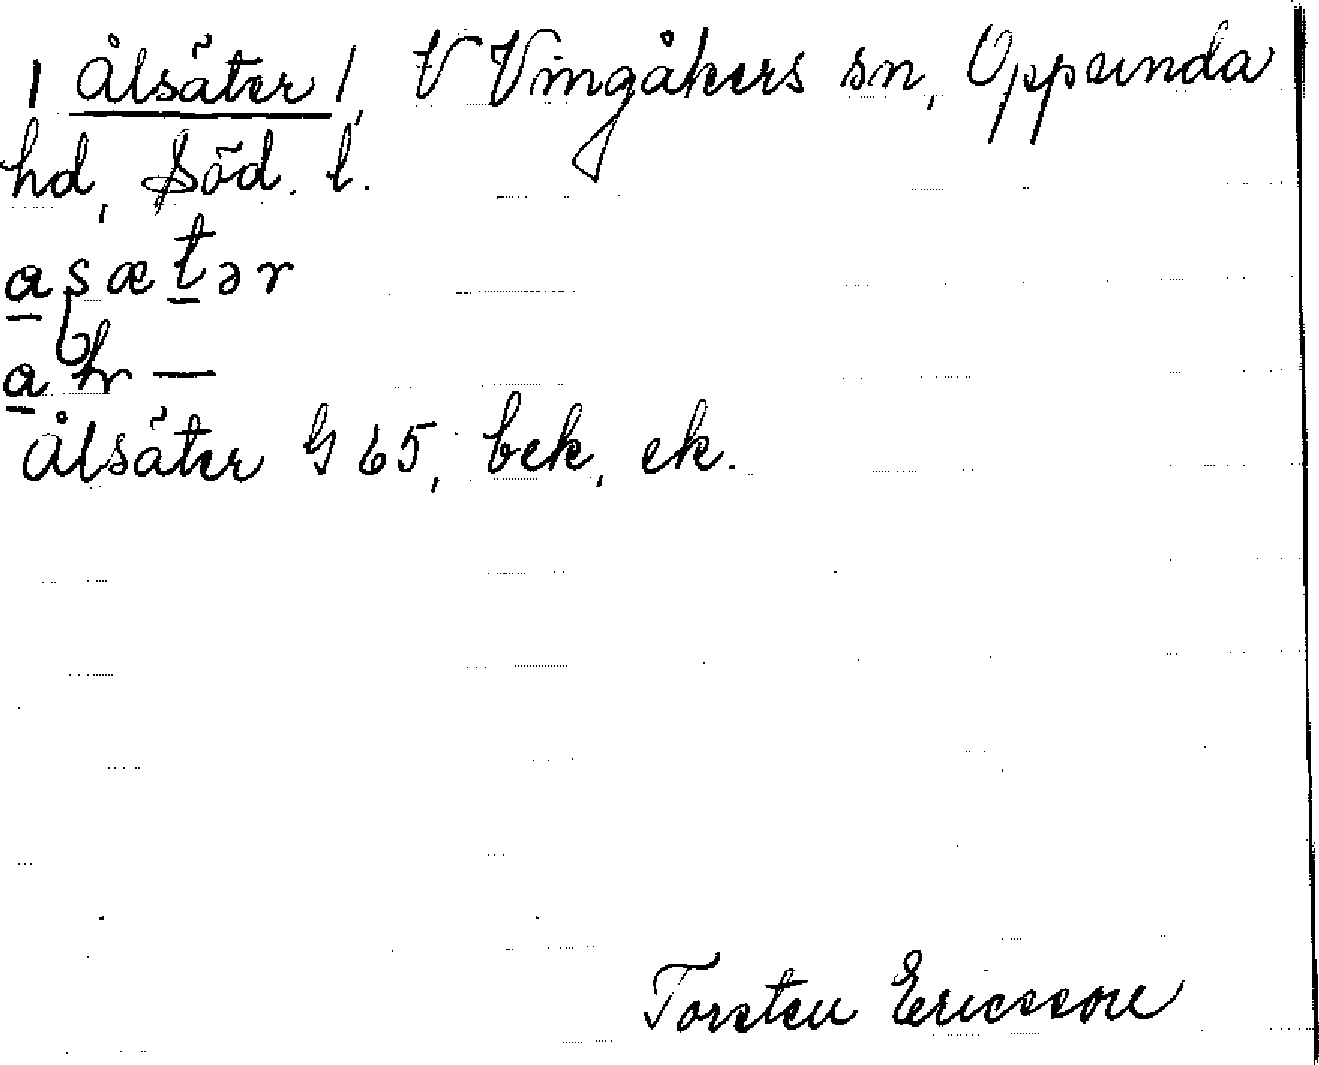 | Ålsäter |, V Vingåkers sn, Oppunda
hd, Söd. l.
a̲sæt̲ər
a̲ h —
Ålsäter G 65, bek, ek.
Torsten Ericsson